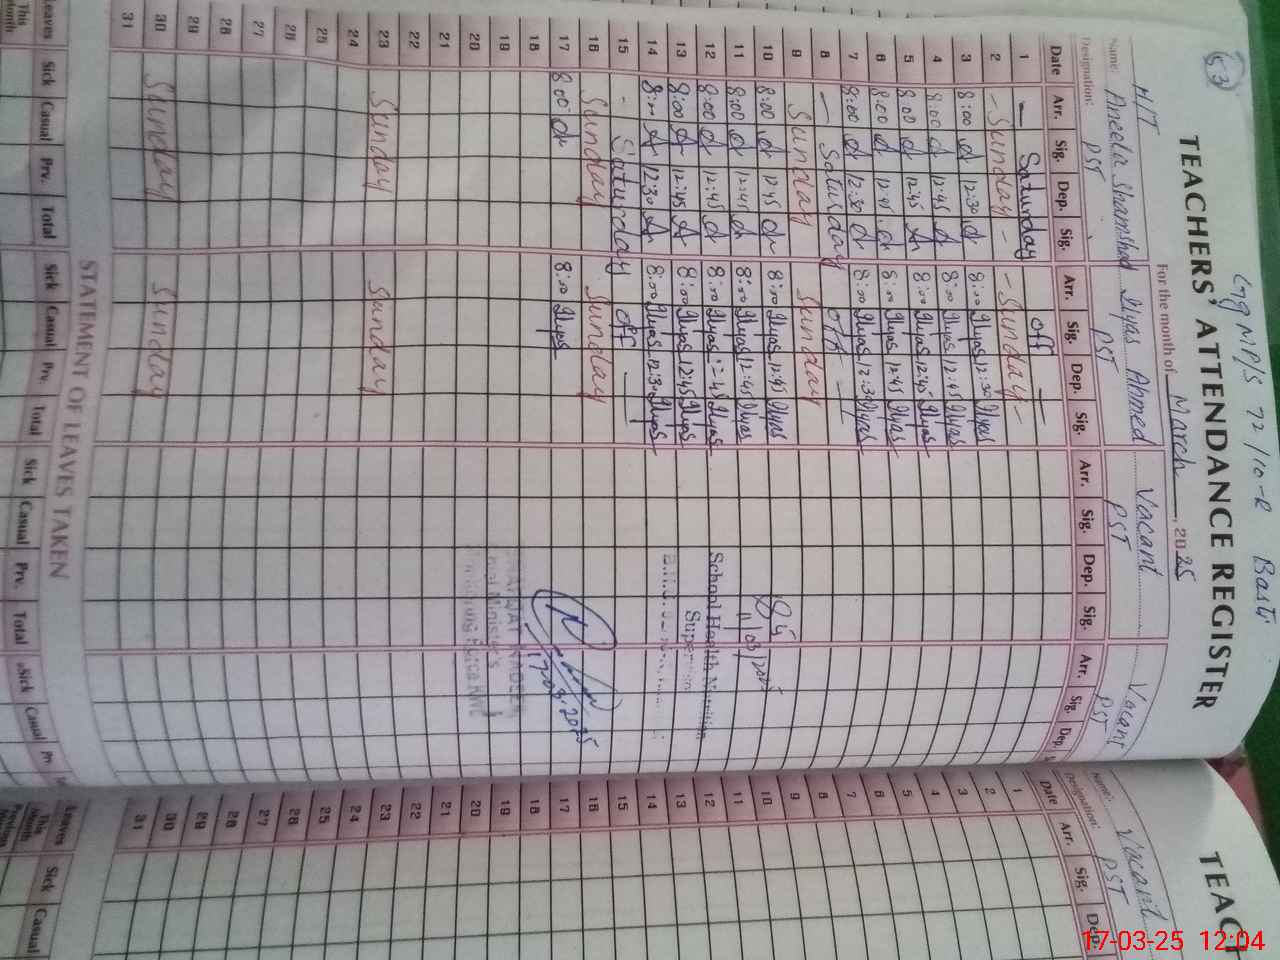 53
GGMP/S 72/10-R Basti
TEACHERS' ATTENDANCE REGISTER
For the month of March, 2025
H/T
Name: Aneela Shamshad Ilyas Ahmed Vacant Vacant
Designation: PST PST PST PST
Date Arr. Sig. Dep. Sig. Arr. Sig. Dep. Sig. Arr. Sig. Dep. Sig. Arr. Sig. Dep.
1 — Saturday off —
2 - Sunday - - Sunday -
3 8:00 12:30 8:00 Ilyas 12:30 Ilyas
4 8:00 12:45 8:00 Ilyas 12:45 Ilyas
5 8:00 12:45 8:00 Ilyas 12:45 Ilyas
6 8:00 12:45 8:00 Ilyas 12:45 Ilyas
7 8:00 12:30 8:00 Ilyas 12:30 Ilyas
8 — Saturday off —
9 Sunday Sunday
10 8:00 12:45 8:00 Ilyas 12:45 Ilyas
11 8:00 12:45 8:00 Ilyas 12:45 Ilyas
12 8:00 12:45 8:00 Ilyas 12:45 Ilyas
13 8:00 12:45 8:00 Ilyas 12:45 Ilyas
14 8:00 12:30 8:00 Ilyas 12:30 Ilyas
15 - Saturday off —
16 Sunday Sunday
17 8:00 8:00 Ilyas
18
19
20
21
22
23 Sunday Sunday
24
25
26
27
28
29
30 Sunday Sunday
31
11/03/2025
School Health Nutrition
Supervisor
17.03.2025
STATEMENT OF LEAVES TAKEN
Leaves Sick Casual Prv. Total Sick Casual Prv. Total Sick Casual Prv. Total Sick Casual
This Month
TEACH
Name: Vacant
Designation: PST
Date Arr. Sig. Dep.
1
2
3
4
5
6
7
8
9
10
11
12
13
14
15
16
17
18
19
20
21
22
23
24
25
26
27
28
29
30
31
Leaves Sick Casual
This Month
17-03-25 12:04